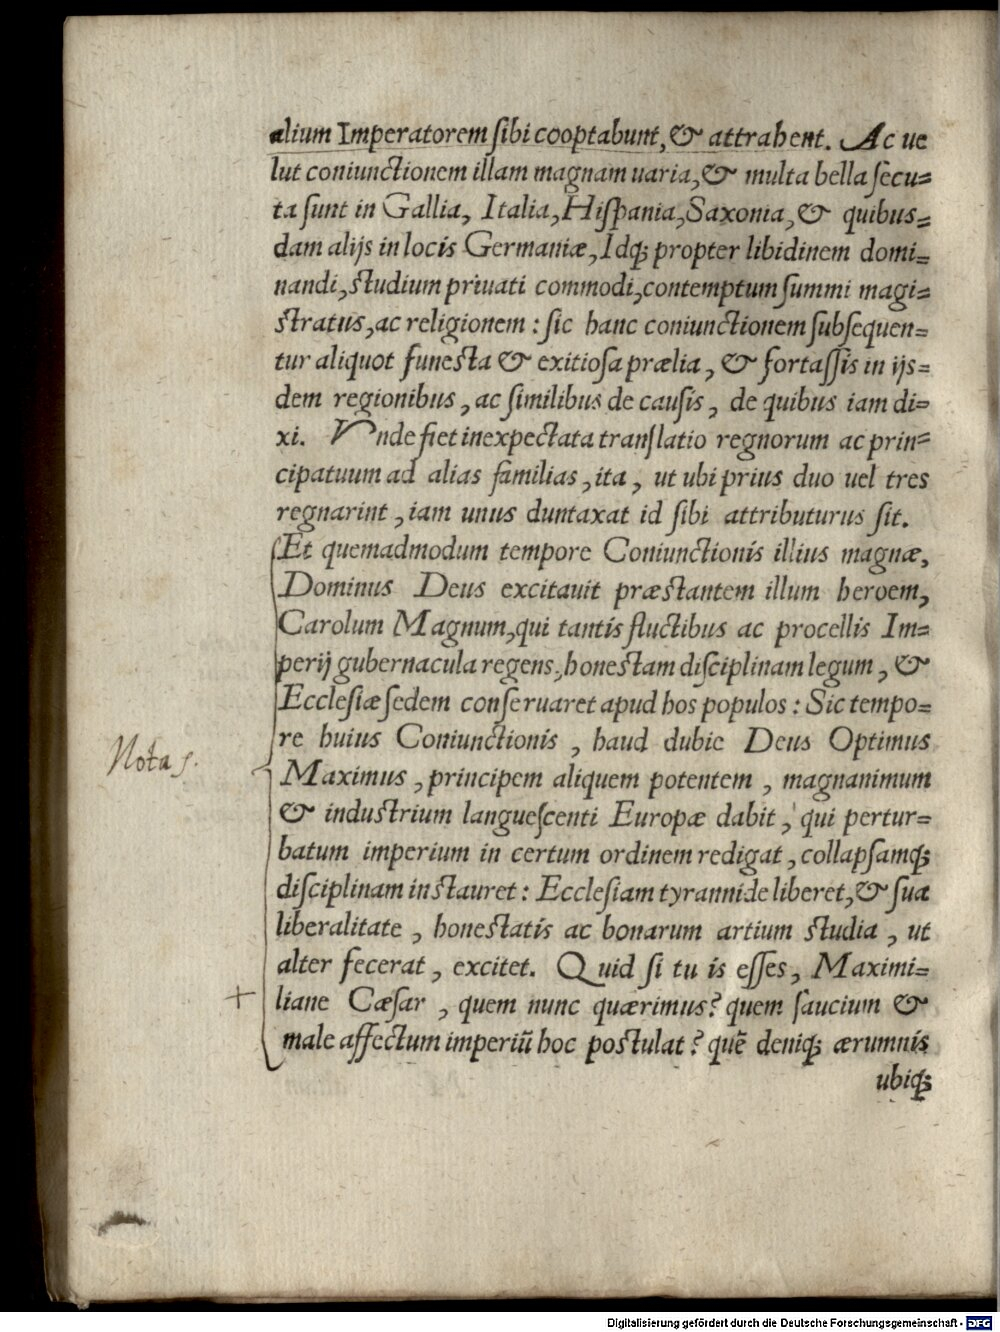 alium Imperatorem ſibi cooptabunt, & attrahent. Ac ue
lut coniunctionem illam magnam uaria, & multa bella ſecu=
ta ſunt in Gallia, Italia, Hiſpania, Saxonia, & quibus=
dam alijs in locis Germaniæ, Idq; propter libidinem domi=
nandi, ſtudium priuati commodi, contemptum ſummi magi=
ſtratus, ac religionem: ſic hanc coniunctionem ſubſequen=
tur aliquot funeſta & exitioſa prælia, & fortaſſis in ijs=
dem regionibus, ac ſimilibus de cauſis, de quibus iam di=
xi. Vnde fiet inexpectata tranſlatio regnorum ac prin=
cipatuum ad alias familias, ita, ut ubi prius duo uel tres
regnarint, iam unus duntaxat id ſibi attributurus ſit.
Et quemadmodum tempore Coniunctionis illius magnæ,
Dominus Deus excitauit præſtantem illum heroem,
Carolum Magnum, qui tantis fluctibus ac procellis Im=
perij gubernacula regens, honeſtam diſciplinam legum, &
Eccleſiæ ſedem conſeruaret apud hos populos: Sic tempo=
re huius Coniunctionis, haud dubie Deus Optimus
Nota
Maximus, principem aliquem potentem, magnanimum
& induſtrium langueſcenti Europæ dabit, qui pertur=
batum imperium in certum ordinem redigat, collapſamq;
diſciplinam inſtauret: Eccleſiam tyrannide liberet, & ſua
liberalitate, honeſtatis ac bonarum artium ſtudia, ut
alter fecerat, excitet. Quid ſi tu is eſſes, Maximi=
+
liane Cæſar, quem nunc quærimus? quem ſaucium &
male affectum imperiū hoc poſtulat? quē deniq; ærumnis
ubiq;
Digitalisierung gefördert durch die Deutsche Forschungsgemeinschaft - DFG